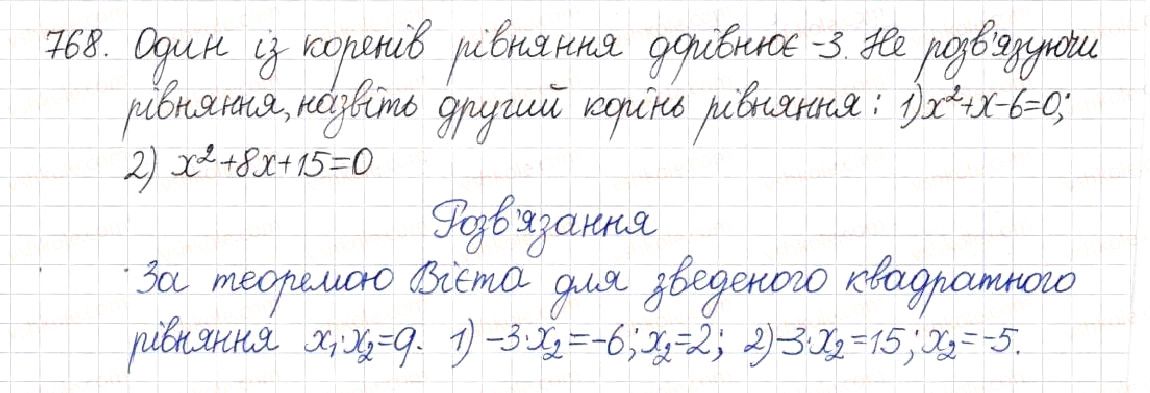 768. Один із коренів рівняння дорівнює -3. Не розв'язуючи
рівняння, назвіть другий корінь рівняння: 1) x²+x-6=0;
2) x²+8x+15=0
Розв'язання
За теоремою Вієта для зведеного квадратного
рівняння x₁·x₂=q. 1) -3·x₂=-6; x₂=2; 2) -3·x₂=15; x₂=-5.